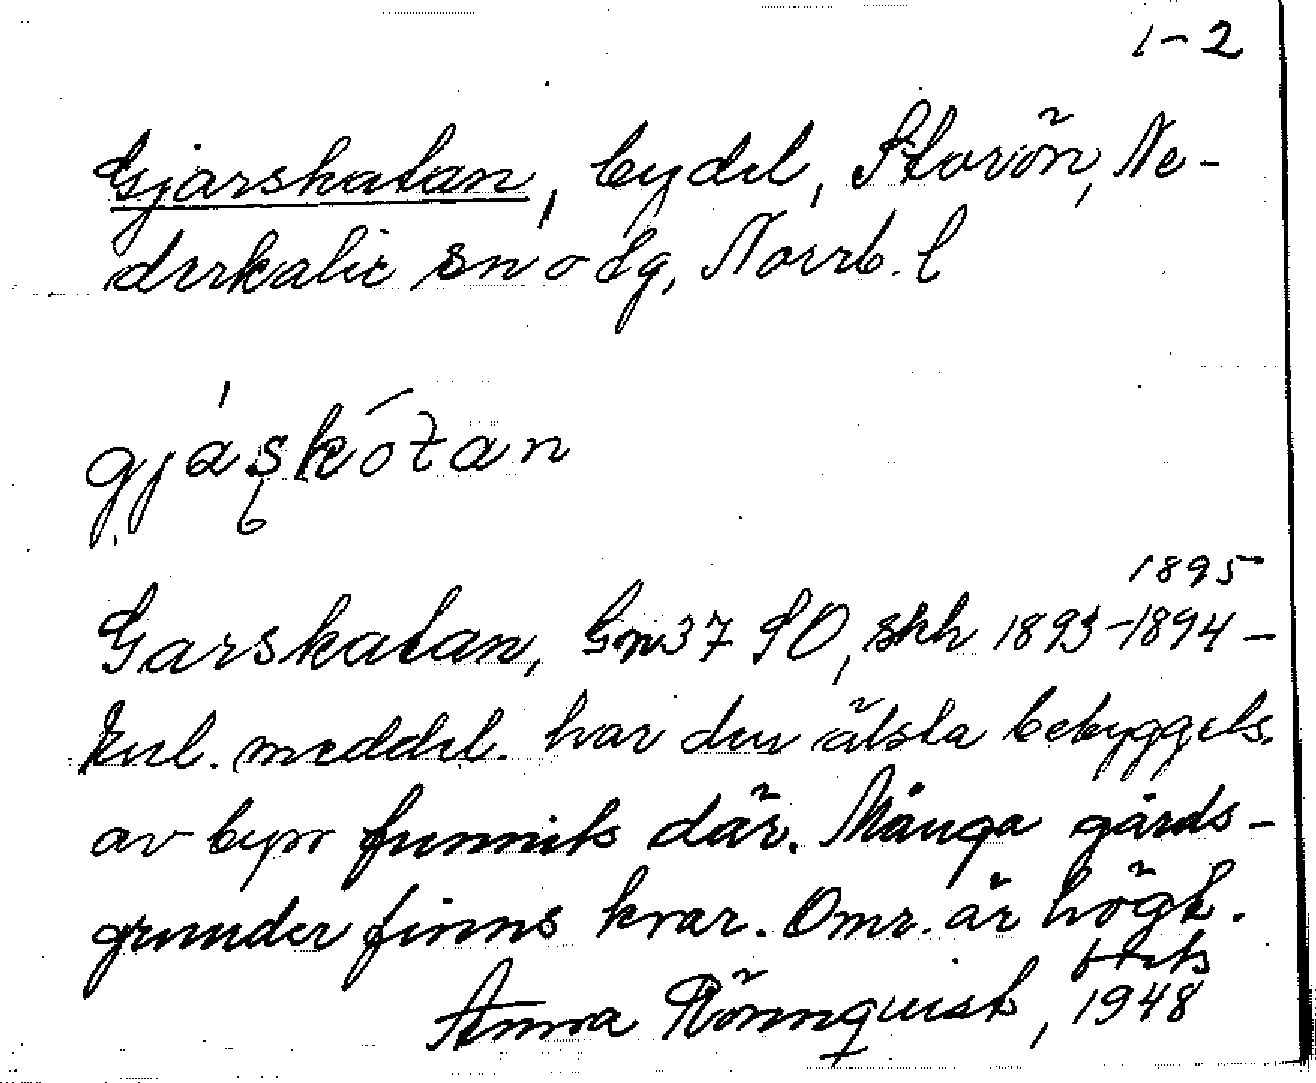 1-2
Gjarskatan, bydel, Storön, Ne-
derkalix sn o dg, Norrb. l
gjáskótan
Garskatan, Gn37 SO, skh 1893-1894-
1895
Enl. meddel. har den älsta bebyggels.
av byn funnits där. Många gårds-
grunder finns kvar. Omr. är högt.
Anna Rönnquist, 1948